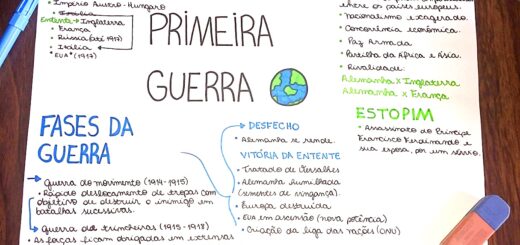 • Império Austro-Húngaro
• Itália
Entente → Inglaterra
• França
• Rússia (até 1917)
• Itália
*EUA* (1917)
PRIMEIRA
GUERRA
entre os países europeus.
• Nacionalismo exagerado.
• Concorrência econômica.
• Paz Armada
• Partilha da África e Ásia.
• Rivalidade:
Alemanha x Inglaterra
Alemanha x França
ESTOPIM
• Assassinato do Príncipe
Francisco Ferdinando e
sua esposa, por um sérvio.
FASES DA
GUERRA
→ Guerra do movimento (1914-1915)
• Rápido deslocamento de tropas com
objetivo de destruir o inimigo em
batalhas sucessivas.
→ Guerra de trincheiras (1915-1918)
• As forças ficam obrigadas em extensas
→ DESFECHO
• Alemanha se rende.
VITÓRIA DA ENTENTE
• Tratado de Versalhes
• Alemanha humilhada
(sementes de vingança).
• Europa destruída
• EUA em ascensão (nova potência)
• Criação da liga das nações (ONU)